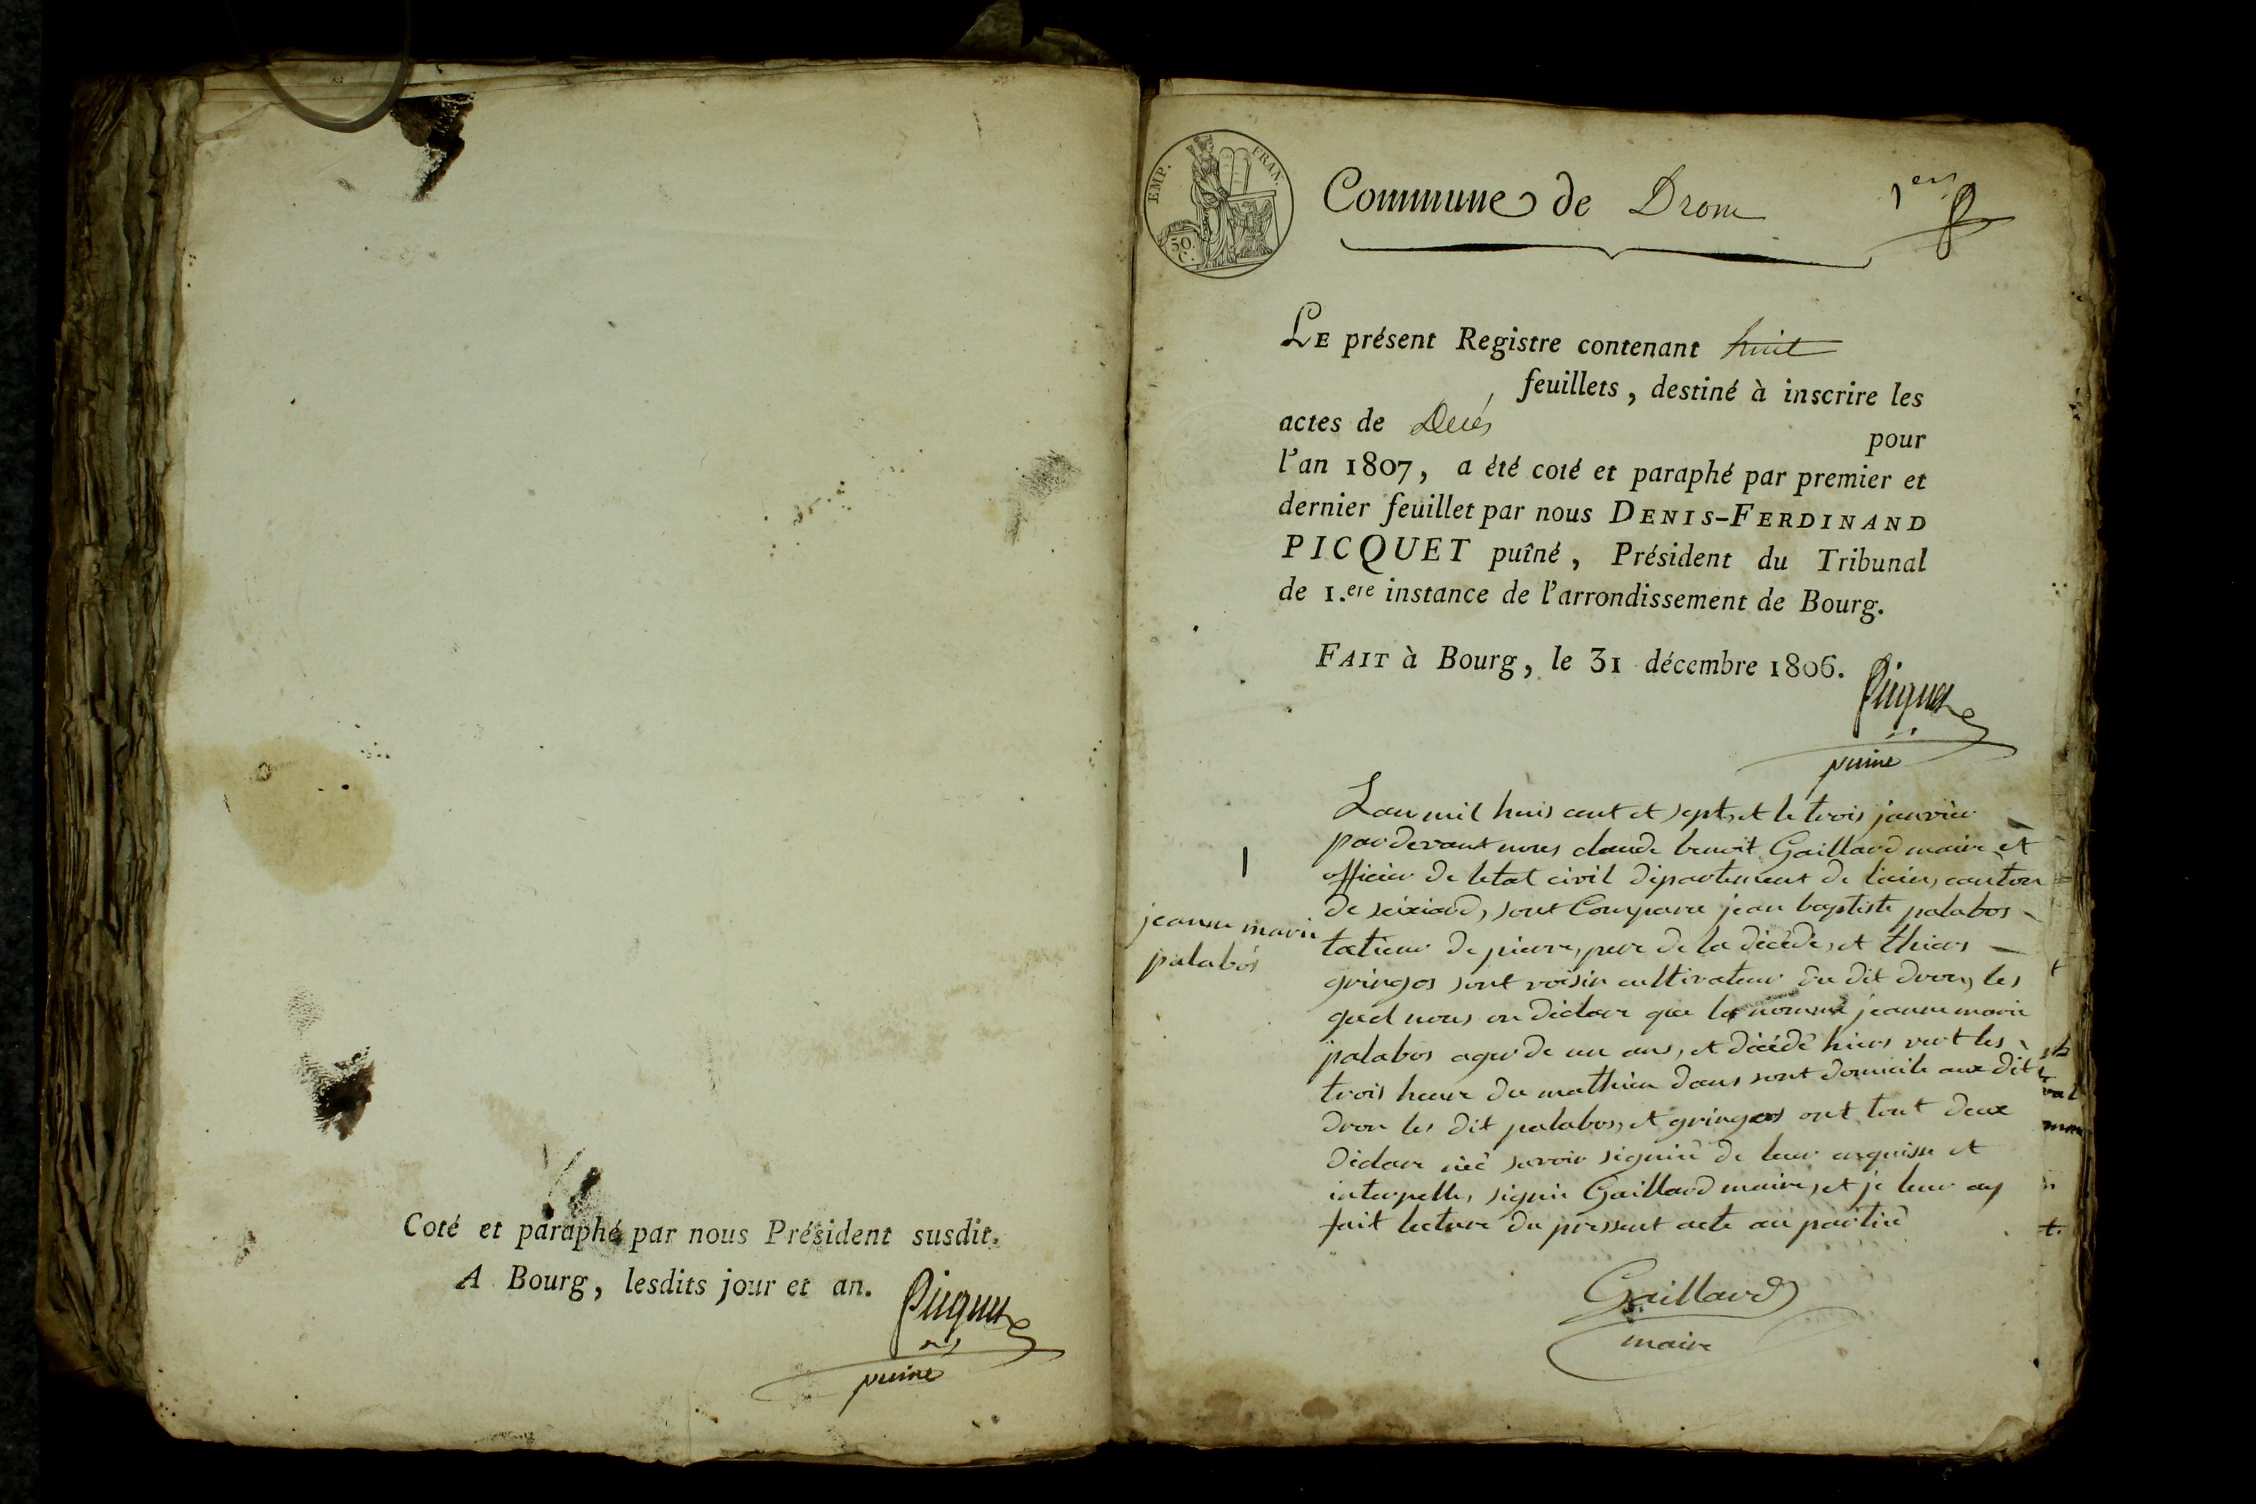 Coté et paraphé par nous Président susdit.
A Bourg, lesdits jour et an.
Picquet
puiné
EMP. FRAN.
50.
C.
Commune de Drom
1er
LE présent Registre contenant huit
feuillets, destiné à inscrire les
actes de Décés
pour
l'an 1807, a été coté et paraphé par premier et
dernier feuillet par nous DENIS-FERDINAND
PICQUET puîné, Président du Tribunal
de 1.ere instance de l'arrondissement de Bourg.
FAIT à Bourg, le 31 décembre 1806.
Picquet
puiné
1
jeanne marie
palabos
Lan mil huis cent et sept, et le trois janvier
pardevant nous claude benoit Gaillard maire et
officier de letat civil département de lain, canton
de , sont Compara jean baptiste palabos
talieur de pierre, pere de la décédé, et thiers
gringos sont voisin cultivateur du dit dron, les
quel nous on déclare que la nommé jeanne marie
palabos ager de un ans, et décédé hiers vert les
trois heure du mathien dans sont domicile aux dit
dron les dit palabos, et gringos ont tout deux
déclare savoir signiè de leur enquisse et
interpelle, signie Gaillard maire, et je leur ay
fait lecture du pressent acte au partiè
Gaillard
maire